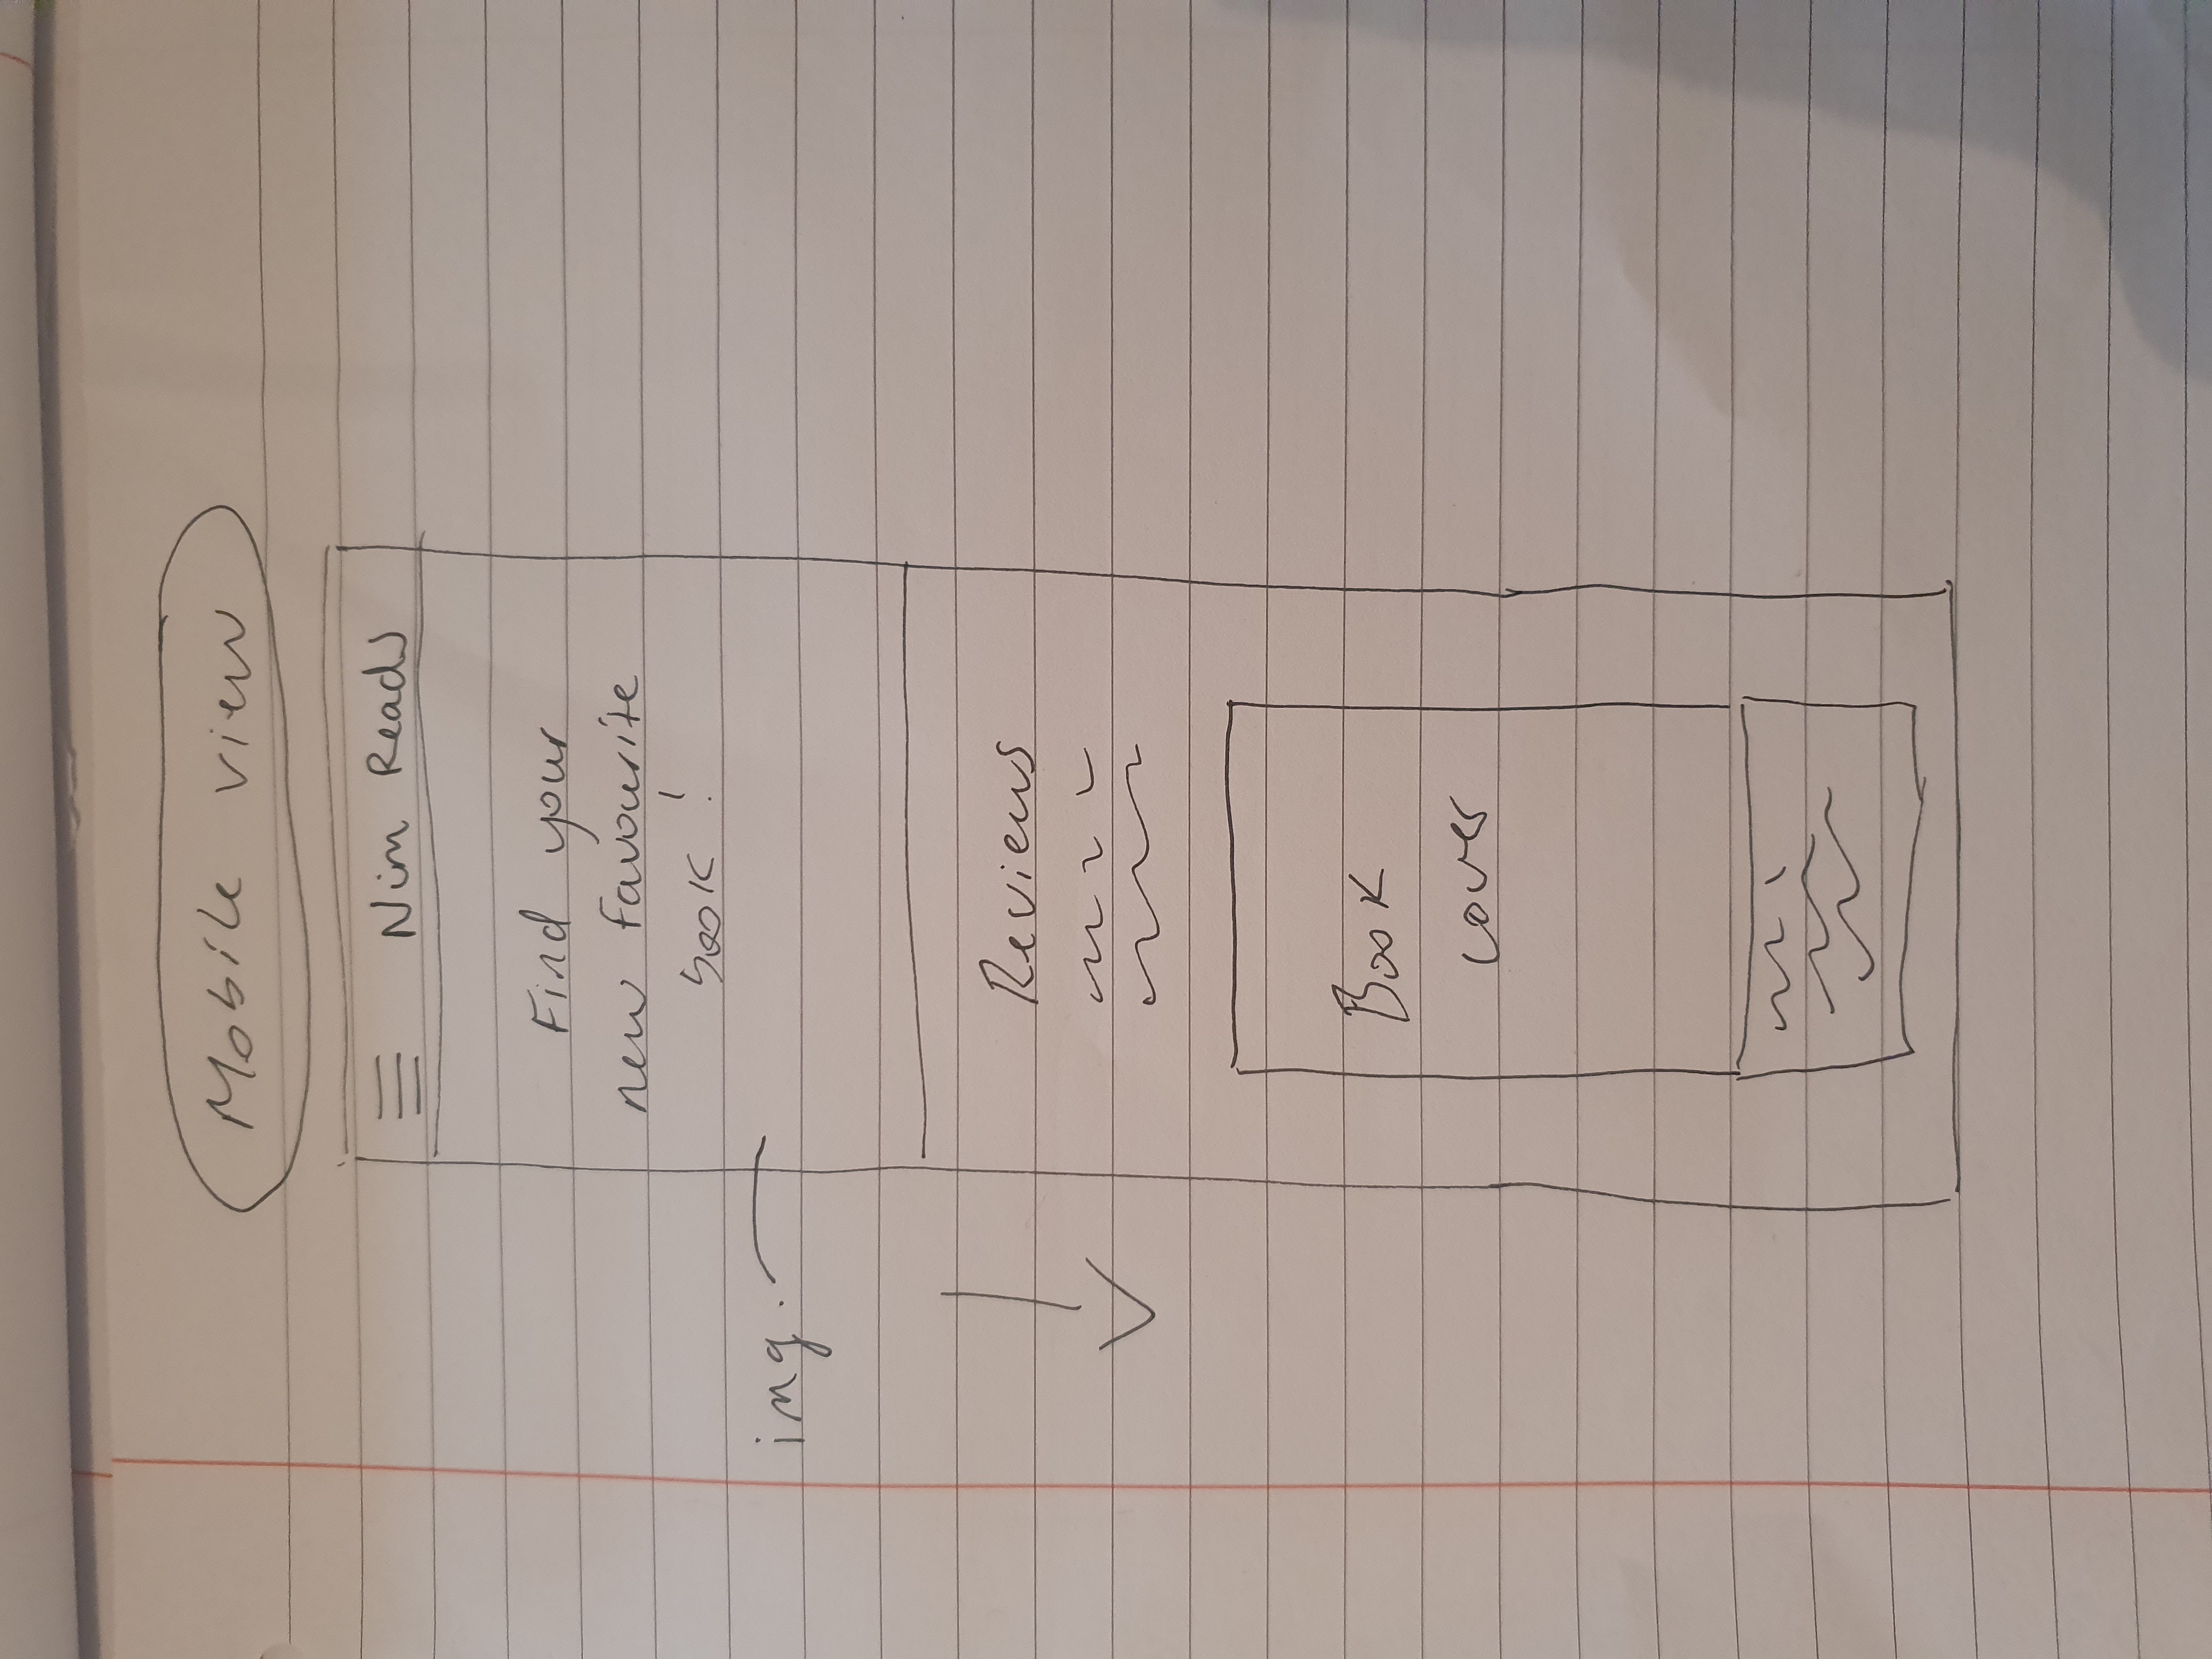 Mobile view
Nim Reads
Find your
new favourite
book!
img.
Reviews
Book
cover